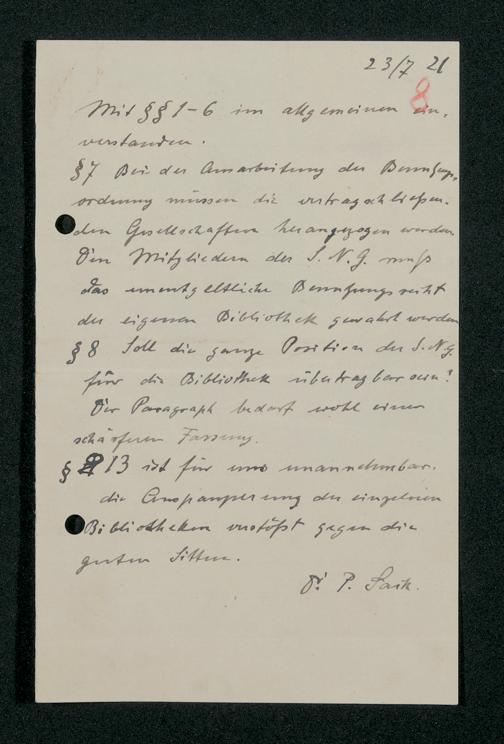 23/7 21
8
Mit §§ 1-6 im allgemeinen ein-
verstanden.
§ 7 Bei der Ausarbeitung der Benutzungs-
ordnung müssen die vertragschließen-
den Gesellschaften herangezogen werden
Den Mitgliedern der S. N. G. muß
das unentgeltliche Benutzungsrecht
der eigenen Bibliothek gewahrt werden
§ 8 Soll die ganze Position der S. N. G.
für die Bibliothek übertragbar sein?
Der Paragraph bedarf wohl einer
schärferen Fassung.
§ 13 ist für uns unannehmbar.
die Auspamperung der einzelnen
Bibliotheken verstößt gegen die
guten Sitten.
Dr P. Sack.